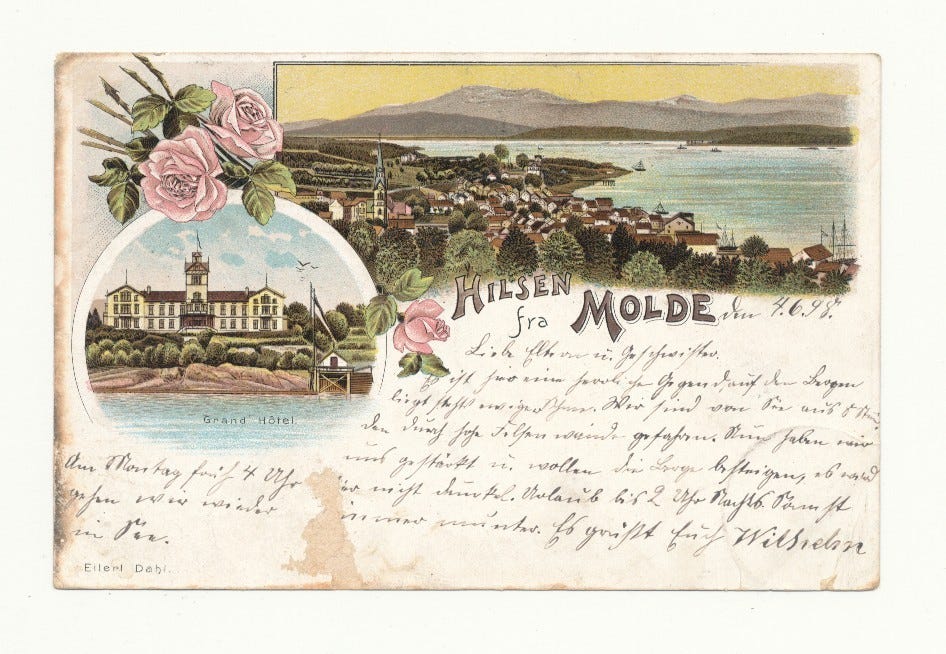 HILSEN
fra MOLDE den 4.6.98.
Liebe Eltern u. Geschwister.
Es ist hier eine herrliche Gegend auf den Bergen
liegt stehts ewiger Schnee. Wir sind von See aus 8 Stun
den durch hohe Felsenwände gefahren. Nun haben wir
uns gestärkt u. wollen die Berge besteigen, es wird
hier nicht dunkel. Urlaub bis 2 Uhr Nachts. Sonst
immer munter. Es grüßt Euch Wilhelm
Grand Hôtel.
Am Montag früh 4 Uhr
gehen wir wieder
in See.
Eilert Dahl.